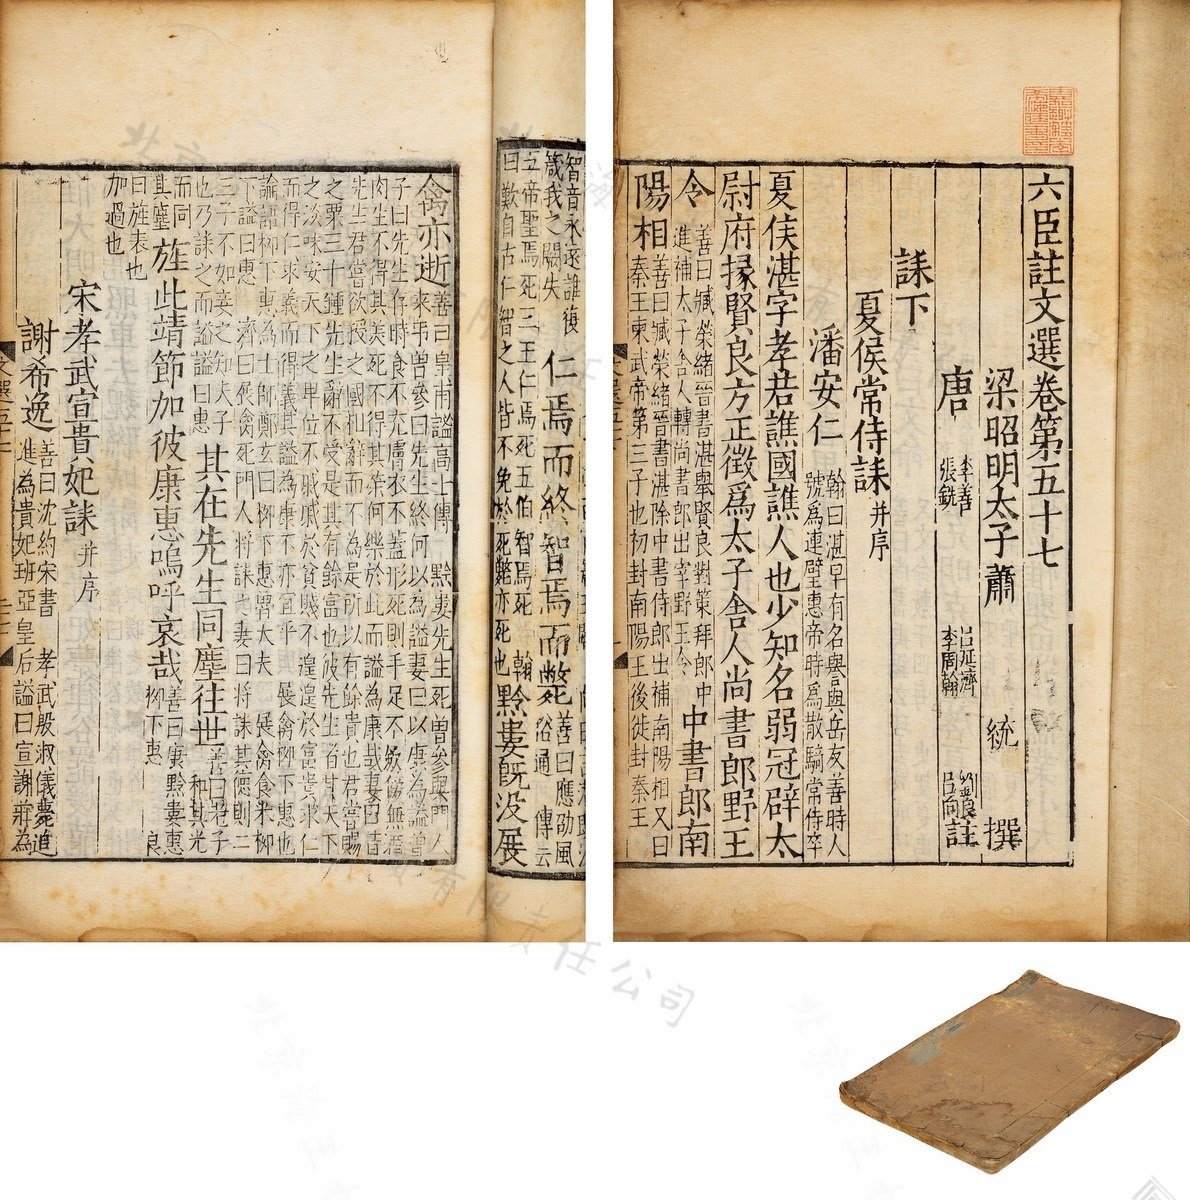 六臣註文選卷第五十七
梁昭明太子蕭統撰
唐李善呂延濟劉良張銑李周翰呂向註
誄下
夏侯常侍誄并序
潘安仁翰曰湛早有名譽與岳友善時人號爲連璧惠帝時爲散騎常侍卒
夏侯湛字孝若譙國譙人也少知名弱冠辟太
尉府掾賢良方正徵爲太子舍人尚書郎野王
令善曰臧榮緒晉書湛舉賢良對策拜郎中進補太子舍人轉尚書郎出宰野王令中書郎南
陽相善曰臧榮緒晉書湛除中書侍郎出補南陽相又曰秦王柬武帝第三子也初封南陽王後徙封秦王
智音永
箴我之闕失
仁焉而終智焉而斃善曰應劭風俗通傳云
五帝聖焉死三王仁焉死五伯智焉死翰
曰歎自古仁智之人皆不免於死斃亦死也黔婁既没展
禽亦逝善曰皇甫謐高士傳黔婁先生死曾參與門人來弔曾參曰先生終何以為謚妻曰以康為謚曾
子曰先生存時食不充膚衣不蓋形死則手足不歛傍無酒
肉生不得其美死不得其榮何樂於此而謚為康哉妻曰昔
先生君嘗欲授之國相辭而不為是所以有餘貴也君嘗賜
之粟三十鍾先生辭不受是其有餘富也彼先生者甘天下
之淡味安天下之卑位不戚戚於貧賤不遑遑於富貴求仁
而得仁求義而得義其謚為康不亦宜乎展禽柳下惠也
論語柳下惠為士師鄭玄曰柳下惠魯大夫展禽食采柳
下謚曰惠濟曰展禽死門人將誄之妻曰將誄其德則二
三子不如妾之知夫子
也乃誄之而謚曰惠其在先生同塵往世善曰老子和其光
而同其塵旌此靖節加彼康惠嗚呼哀哉善曰康黔婁惠柳下惠良
曰旌表也
加過也
宋孝武宣貴妃誄并序
謝希逸善曰沈約宋書孝武殷淑儀薨追進為貴妃班亞皇后謚曰宣謝莊為